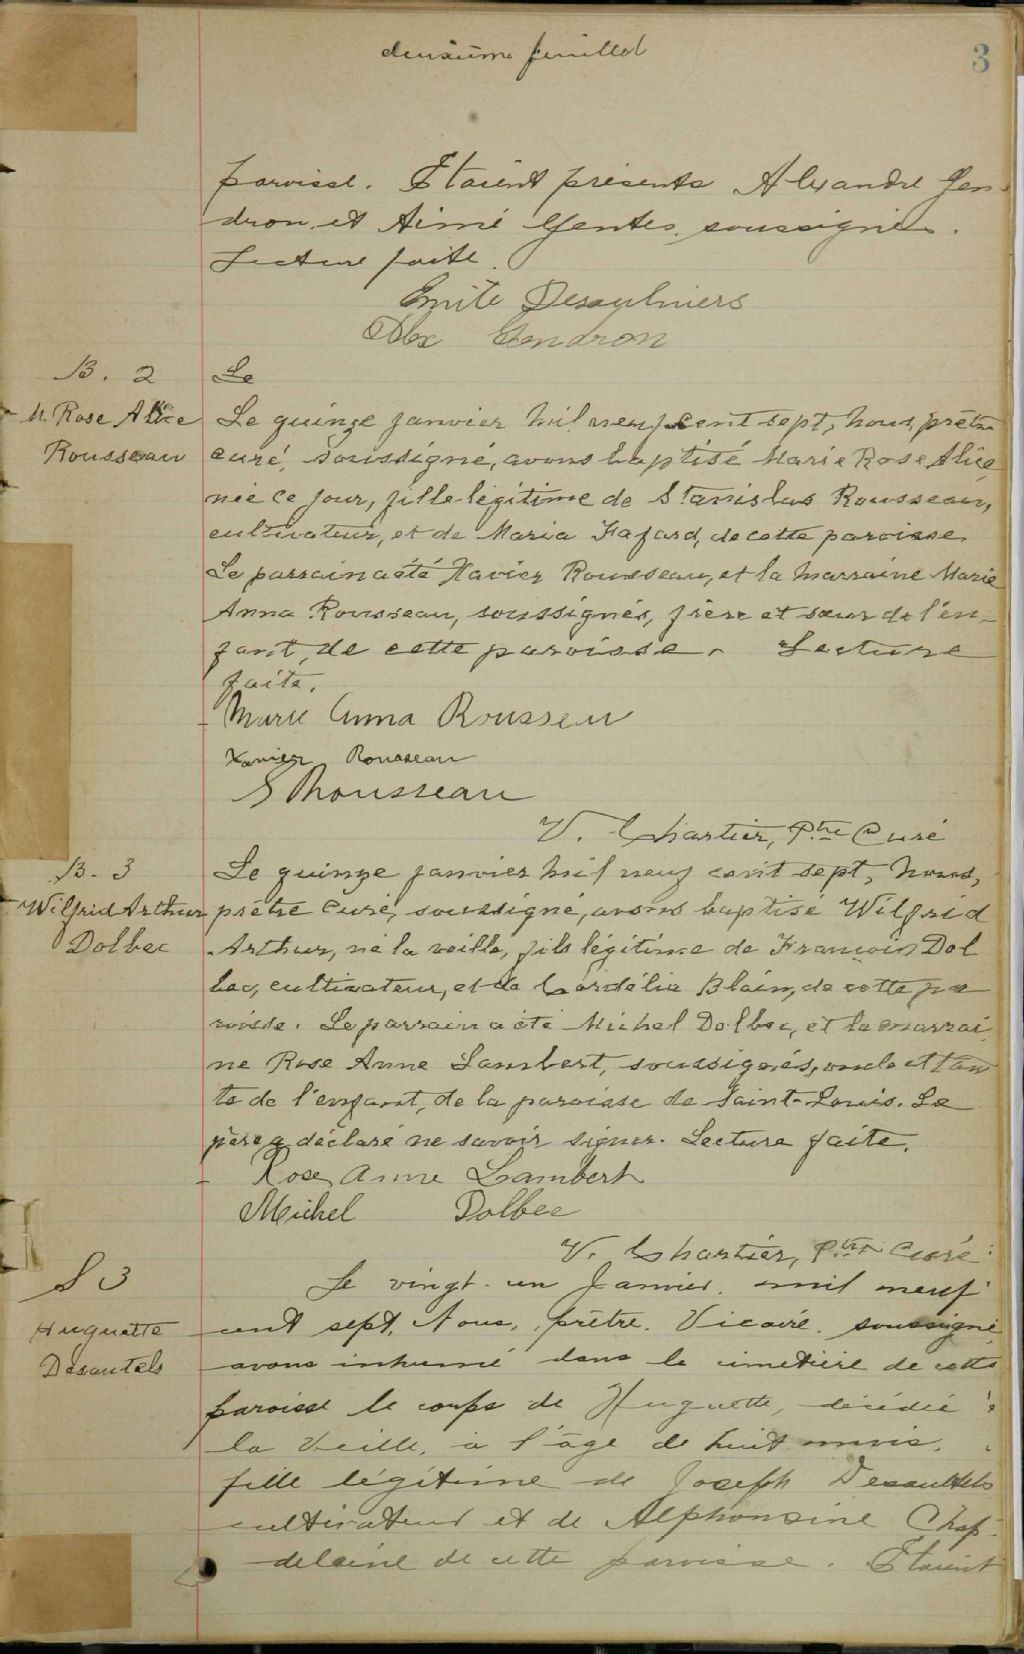 deuxième feuillet
3
paroisse. Etaient présents Alexandre Gen-
dron, et Aimé Gentes, soussignés.
Lecture faite.
Emile Desaulniers
Alex Gendron
B. 2
Le
M. Rose Alice
Rousseau
Le quinze janvier mil neuf cent sept, nous, prêtre
curé, soussigné, avons baptisé Marie Rose Alice,
née ce jour, fille légitime de Stanislas Rousseau,
cultivateur, et de Maria Fafard, de cette paroisse.
Le parrain a été Xavier Rousseau, et la marraine Marie
Anna Rousseau, soussignés, frère et sœur de l'en-
fant, de cette paroisse. Lecture
faite.
Marie Anna Rousseau
Xavier Rousseau
S Rousseau
V. Chartier, Ptre Curé
B. 3
Wilfrid Arthur
Dolbec
Le quinze janvier mil neuf cent sept, nous,
prêtre curé, soussigné, avons baptisé Wilfrid
Arthur, né la veille, fils légitime de François Dol
bec, cultivateur, et de Cordélia Blain, de cette pa
roisse. Le parrain a été Michel Dolbec, et la marrai
ne Rose Anne Lambert, soussignés, oncle et tan
te de l'enfant, de la paroisse de Saint-Louis. Le
père a déclaré ne savoir signer. Lecture faite.
Rose Anne Lambert
Michel Dolbec
V. Chartier, Ptre Curé
S 3
Huguette
Désautels
Le vingt-un Janvier, mil neuf
cent sept, Nous, prêtre, Vicaire, soussigné,
avons inhumé dans le cimetière de cette
paroisse le corps de Huguette, décédée
la veille, à l'âge de huit mois,
fille légitime de Joseph Desautels
cultivateur et de Alphonsine Chap-
delaine de cette paroisse. Etaient